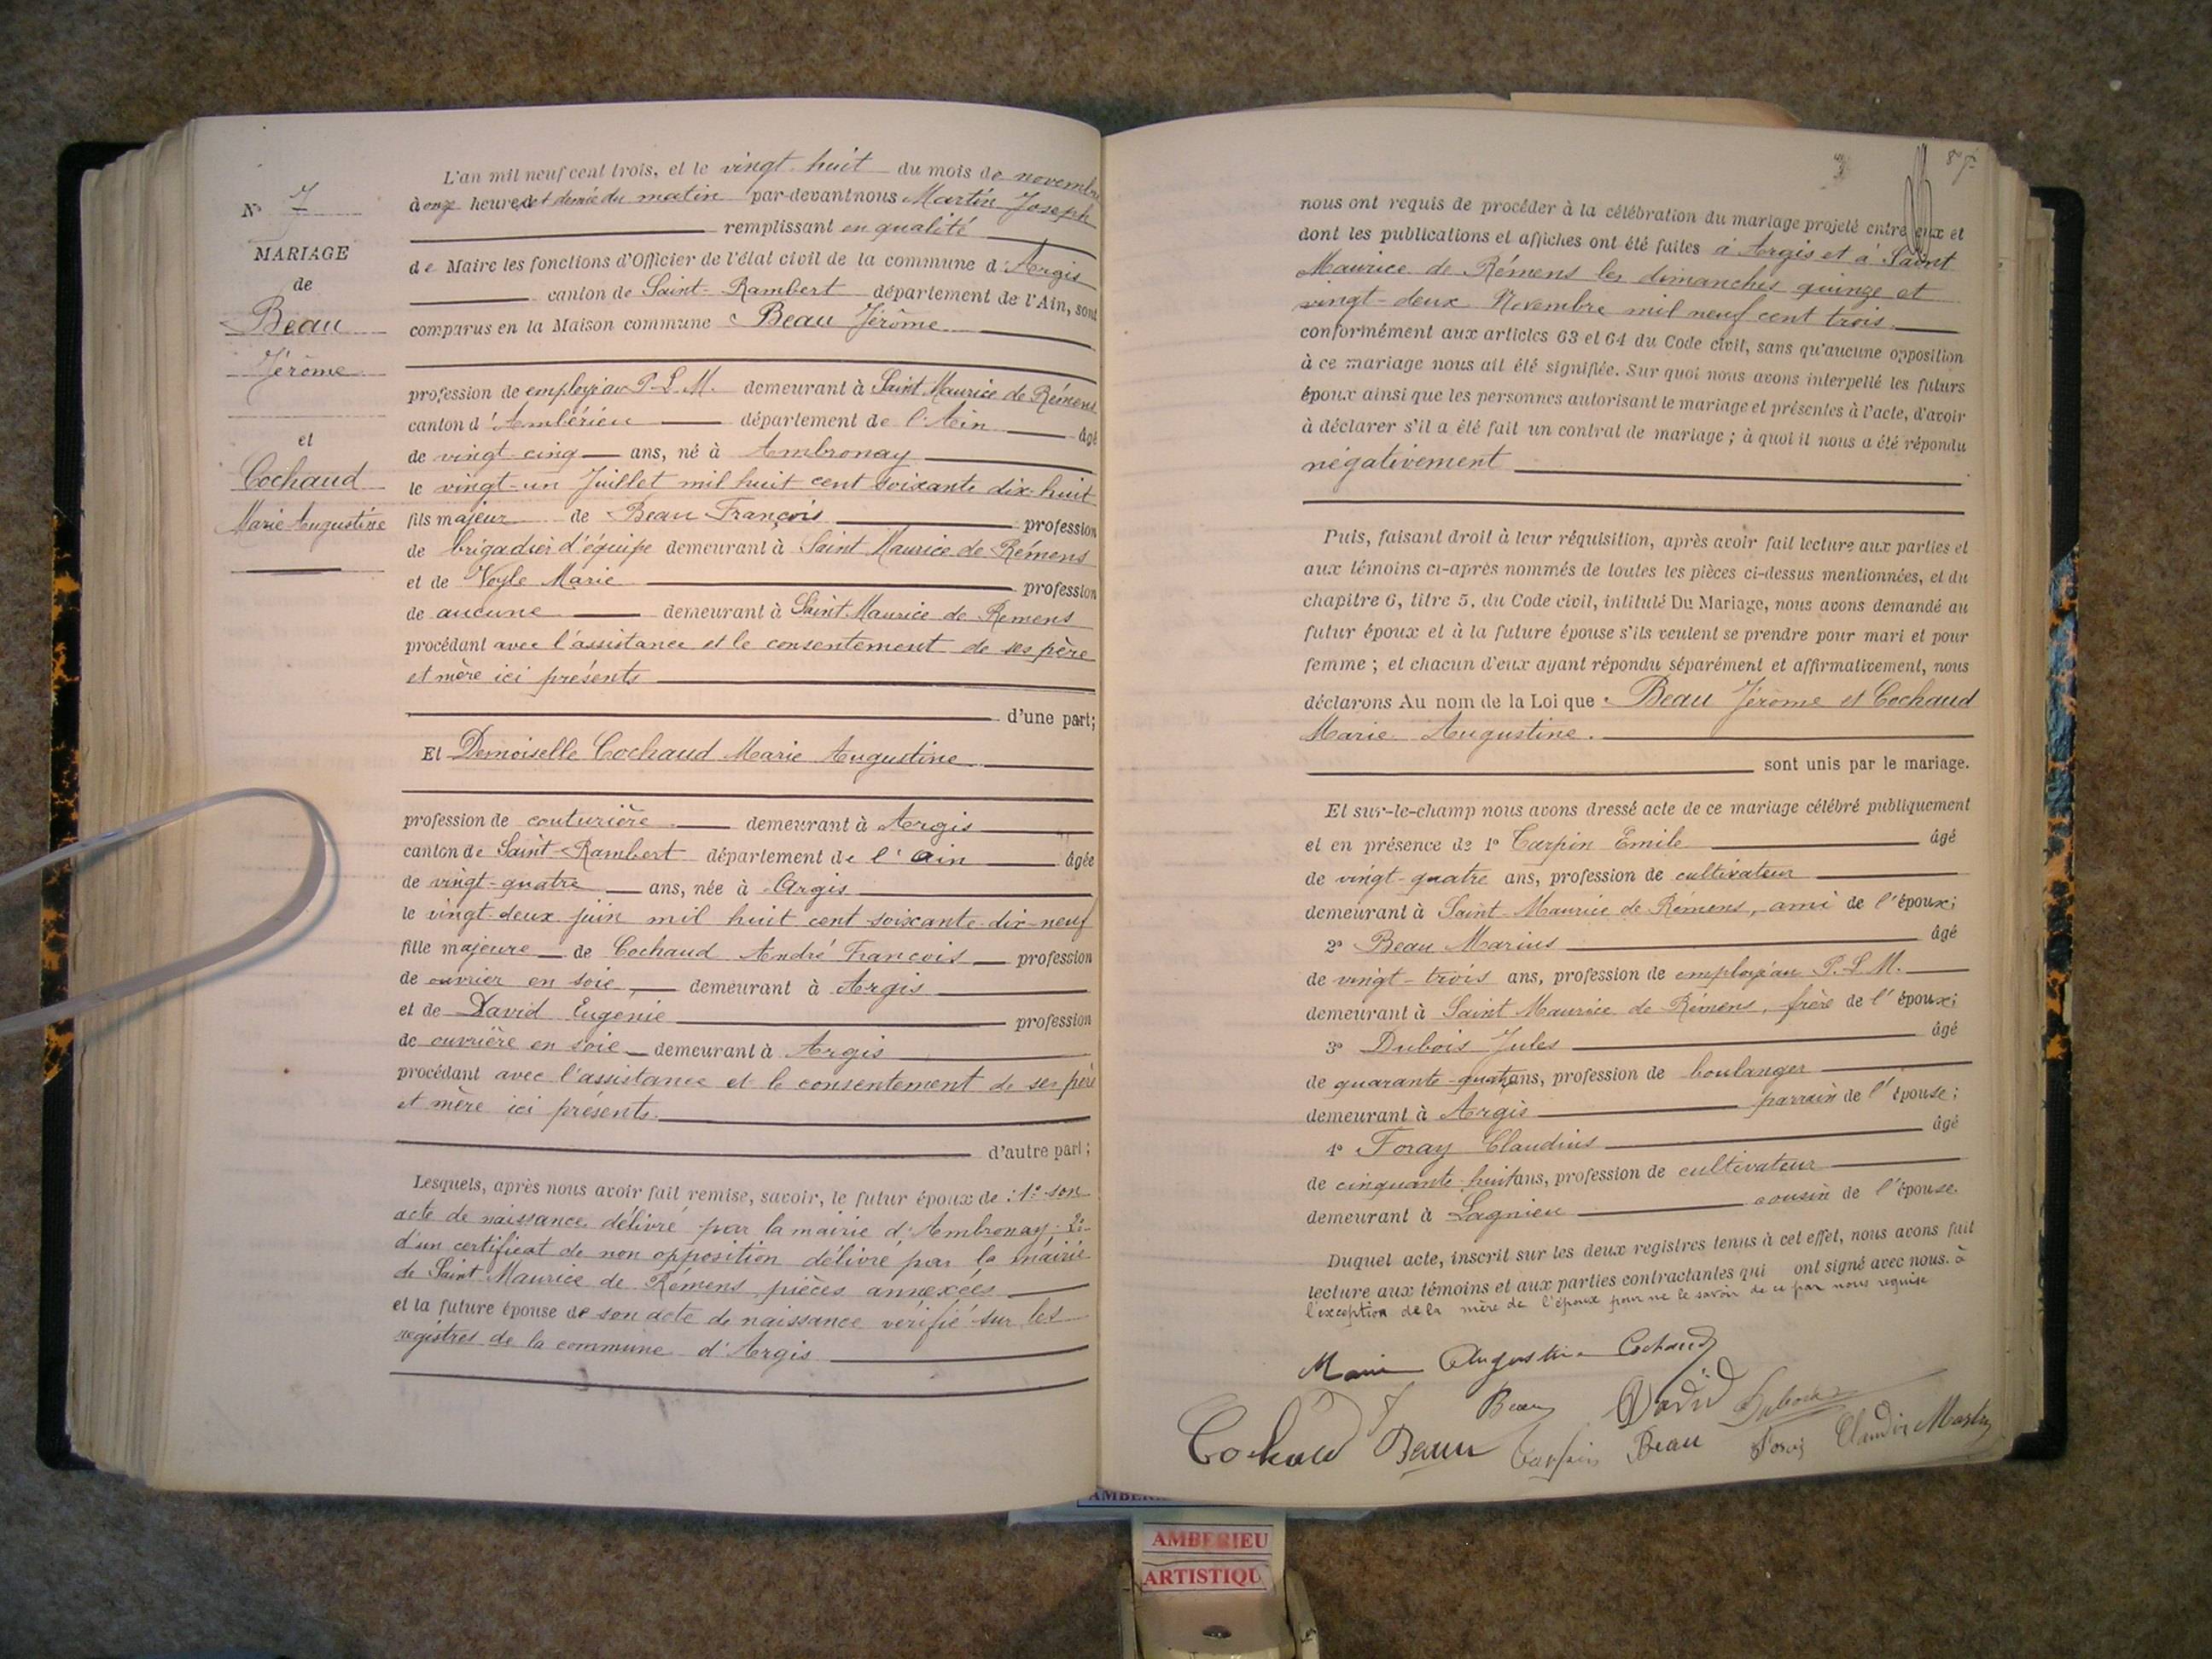 N° 7
MARIAGE
de
Beau
Jérôme
et
Cochaud
Marie Augustine
L'an mil neuf cent trois, et le vingt huit du mois de novembre
à onze heures et demie du matin par-devant nous Martin Joseph
remplissant en qualité
de Maire les fonctions d'Officier de l'état civil de la commune d'Argis
canton de Saint-Rambert département de l'Ain, sont
comparus en la Maison commune Beau Jérôme
profession de employé au P-L.M. demeurant à Saint Maurice de Rémens
canton d'Ambérieu département de l'Ain âgé
de vingt cinq ans, né à Ambronay
le vingt-un Juillet mil huit cent soixante dix-huit
fils majeur de Beau François profession
de brigadier d'équipe demeurant à Saint Maurice de Rémens
et de Veyle Marie profession
de aucune demeurant à Saint-Maurice de Remens
procédant avec l'assistance et le consentement de ses père
et mère ici présents
d'une part;
Et Demoiselle Cochaud Marie Augustine
profession de couturière demeurant à Argis
canton de Saint-Rambert département de l'ain âgée
de vingt-quatre ans, née à Argis
le vingt-deux juin mil huit cent soixante-dix-neuf
fille majeure de Cochaud André François profession
de ouvrier en soie demeurant à Argis
et de David Eugenie profession
de ouvrière en soie demeurant à Argis
procédant avec l'assistance et le consentement de ses père
et mère ici présents.
d'autre part;
Lesquels, après nous avoir fait remise, savoir, le futur époux de : 1° son
acte de naissance délivré par la mairie d'Ambronay; 2°
d'un certificat de non opposition délivré par la mairie
de Saint Maurice de Rémens, pièces annexées
et la future épouse de son acte de naissance vérifié sur les
registres de la commune d'Argis
87
nous ont requis de procéder à la célébration du mariage projeté entre eux et
dont les publications et affiches ont été faites à Argis et à Saint
Maurice de Rémens les dimanches quinze et
vingt-deux Novembre mil neuf cent trois.
conformément aux articles 63 et 64 du Code civil, sans qu'aucune opposition
à ce mariage nous ait été signifiée. Sur quoi nous avons interpellé les futurs
époux ainsi que les personnes autorisant le mariage et présentes à l'acte, d'avoir
à déclarer s'il a été fait un contrat de mariage ; à quoi il nous a été répondu
négativement
Puis, faisant droit à leur réquisition, après avoir fait lecture aux parties et
aux témoins ci-après nommés de toutes les pièces ci-dessus mentionnées, et du
chapitre 6, titre 5, du Code civil, intitulé Du Mariage, nous avons demandé au
futur époux et à la future épouse s'ils veulent se prendre pour mari et pour
femme ; et chacun d'eux ayant répondu séparément et affirmativement, nous
déclarons Au nom de la Loi que Beau Jérome et Cochaud
Marie Augustine.
sont unis par le mariage.
Et sur-le-champ nous avons dressé acte de ce mariage célébré publiquement
et en présence de 1° Carpin Emile âgé
de vingt-quatre ans, profession de cultivateur
demeurant à Saint-Maurice de Rémens, ami de l'époux;
2° Beau Marius âgé
de vingt-trois ans, profession de employé au P.L.M.
demeurant à Saint Maurice de Rémens, frère de l'époux;
3° Dubois Jules âgé
de quarante-quatre ans, profession de boulanger
demeurant à Argis parrain de l'épouse;
4° Foray Claudius âgé
de cinquante huit ans, profession de cultivateur
demeurant à Lagnieu cousin de l'épouse.
Duquel acte, inscrit sur les deux registres tenus à cet effet, nous avons fait
lecture aux témoins et aux parties contractantes qui ont signé avec nous. à
l'exception de la mère de l'époux pour ne le savoir de ce par nous requise
Marie Augustine Cochaud
Beau David Dubois
Cochaud Beau Carpin Beau Foray Claudis Martin
AMBERIEU
ARTISTIQU